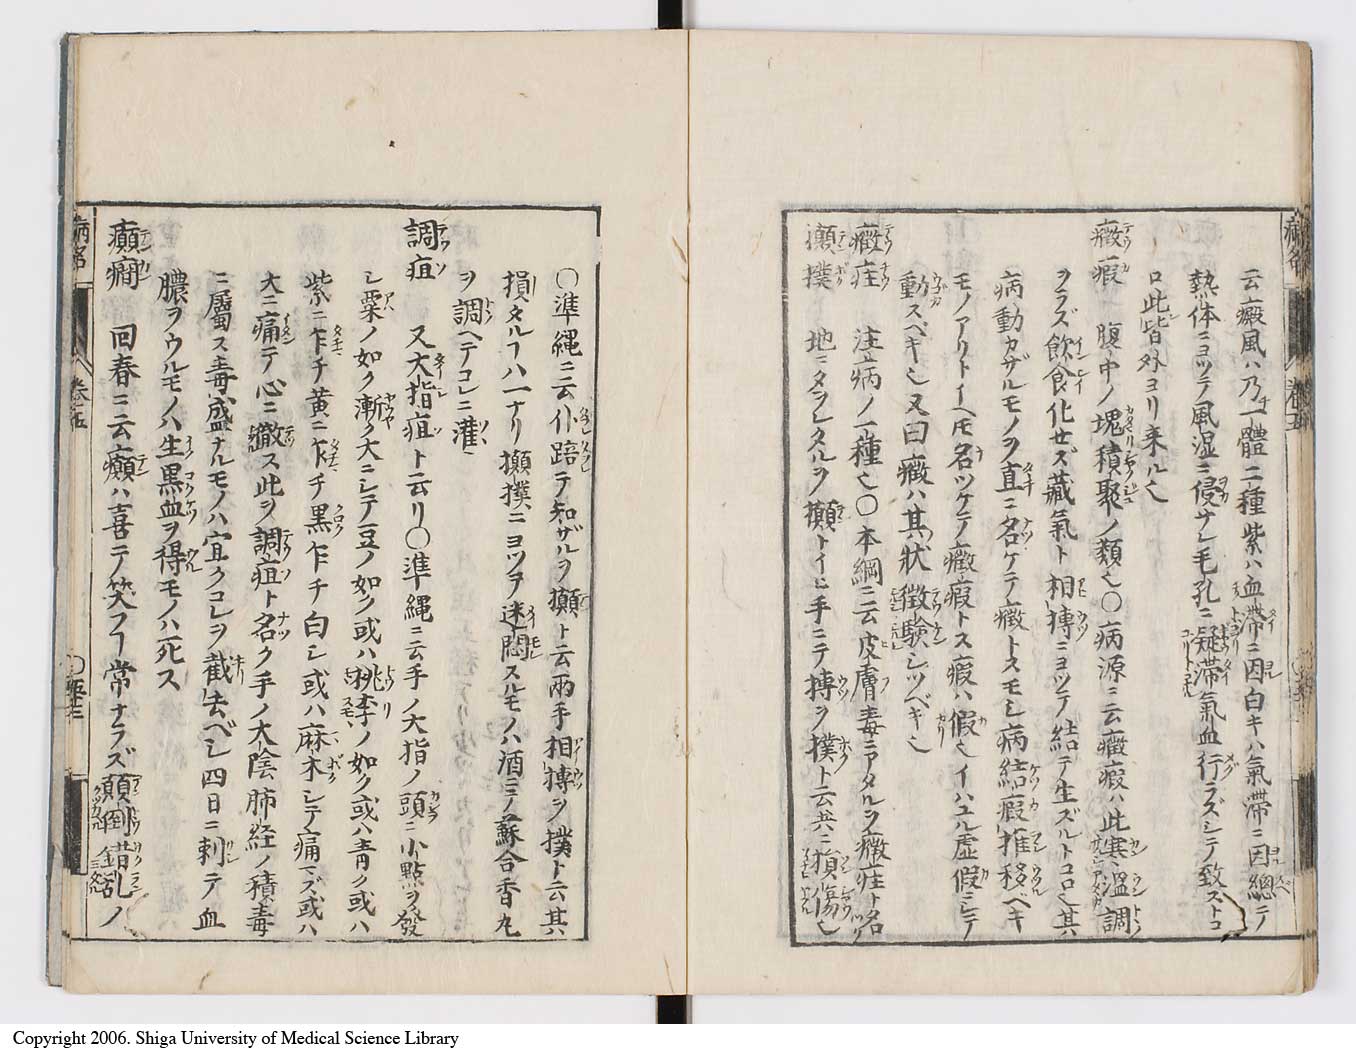 云癜風ハ乃チ一體二種紫ハ血滞ニ因白キハ氣滞ニ因總テ
熱体ニヨツテ風湿ニ侵サレ毛孔ニ凝滞氣血行ラズシテ致ストコ
ロ此皆外ヨリ来ル也
癥瘕 腹中ノ塊積聚ノ類也〇病源ニ云癥瘕ハ此寒温調
ヲラズ飲食化セズ藏氣ト相搏ニヨツテ結テ生ズルトコロ也其
病動カザルモノヲ直ニ名ケテ癥トスモシ病結瘕推移ベキ
モノアリトイヘモ名ツケテ癥瘕トス瘕ハ假也イハユル虚假ニシテ
動スベキ也又曰癥ハ其状徴験シツベキ也
癥疰 注病ノ一種也〇本綱ニ云皮膚毒ニアタルヲ癥疰ト名
攧撲 地ニタヲレタルヲ攧トイヒ手ニテ搏ヲ撲ト云共ニ損傷也
〇準縄ニ云仆踣テ知ザルヲ攧ト云兩手相搏ヲ撲ト云其
損タルフハ一ナリ攧撲ニヨツヲ迷悶スルモノハ酒ニテ蘇合香丸
ヲ調ヘテコレニ灌
調疽 又大指疽ト云リ〇準縄ニ云手ノ大指ノ頭ニ小點ヲ發
シ粟ノ如ク漸ク大ニシテ豆ノ如ク或ハ桃李ノ如ク或ハ青ク或ハ
紫ニ乍チ黄ニ乍チ黒乍チ白シ或ハ麻木シテ痛マズ或ハ
大ニ痛テ心ニ徹ス此ヲ調疽ト名ク手ノ大陰肺経ノ積毒
ニ屬ス毒盛ナルモノハ宜クコレヲ截去ベシ四日ニ刺テ血
膿ヲウルモノハ生黒血ヲ得モノハ死ス
癲癇 回春ニ云癲ハ喜テ笑フー常ナラズ顛倒錯乱ノ
Copyright 2006. Shiga University of Medical Science Library